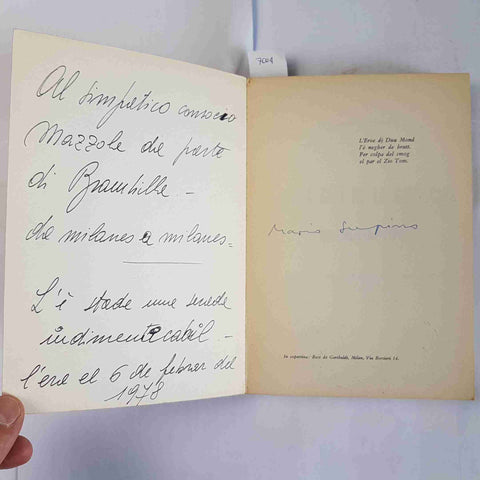 Al simpatico
Mazzola da parte
di Brambilla -
da milanes a milanes =
L'è stada una
indimenticabil -
l'era el 6 de febrar del
1978
7604
L'Eroe di Duu Mond
l'è negher de brutt.
Per colpa del smog
el par el Zio Tom.
Mario
In copertina: Eroe de Garibaldi, Milan, Via Borsieri 14.